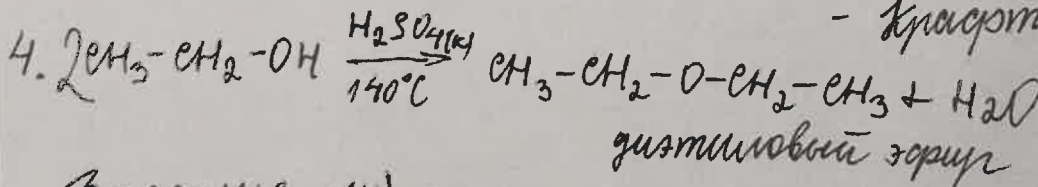 - Крафт
4. 2CH₃-CH₂-OH H₂SO₄(к) 140°C CH₃-CH₂-O-CH₂-CH₃ + H₂O
диэтиловый эфир